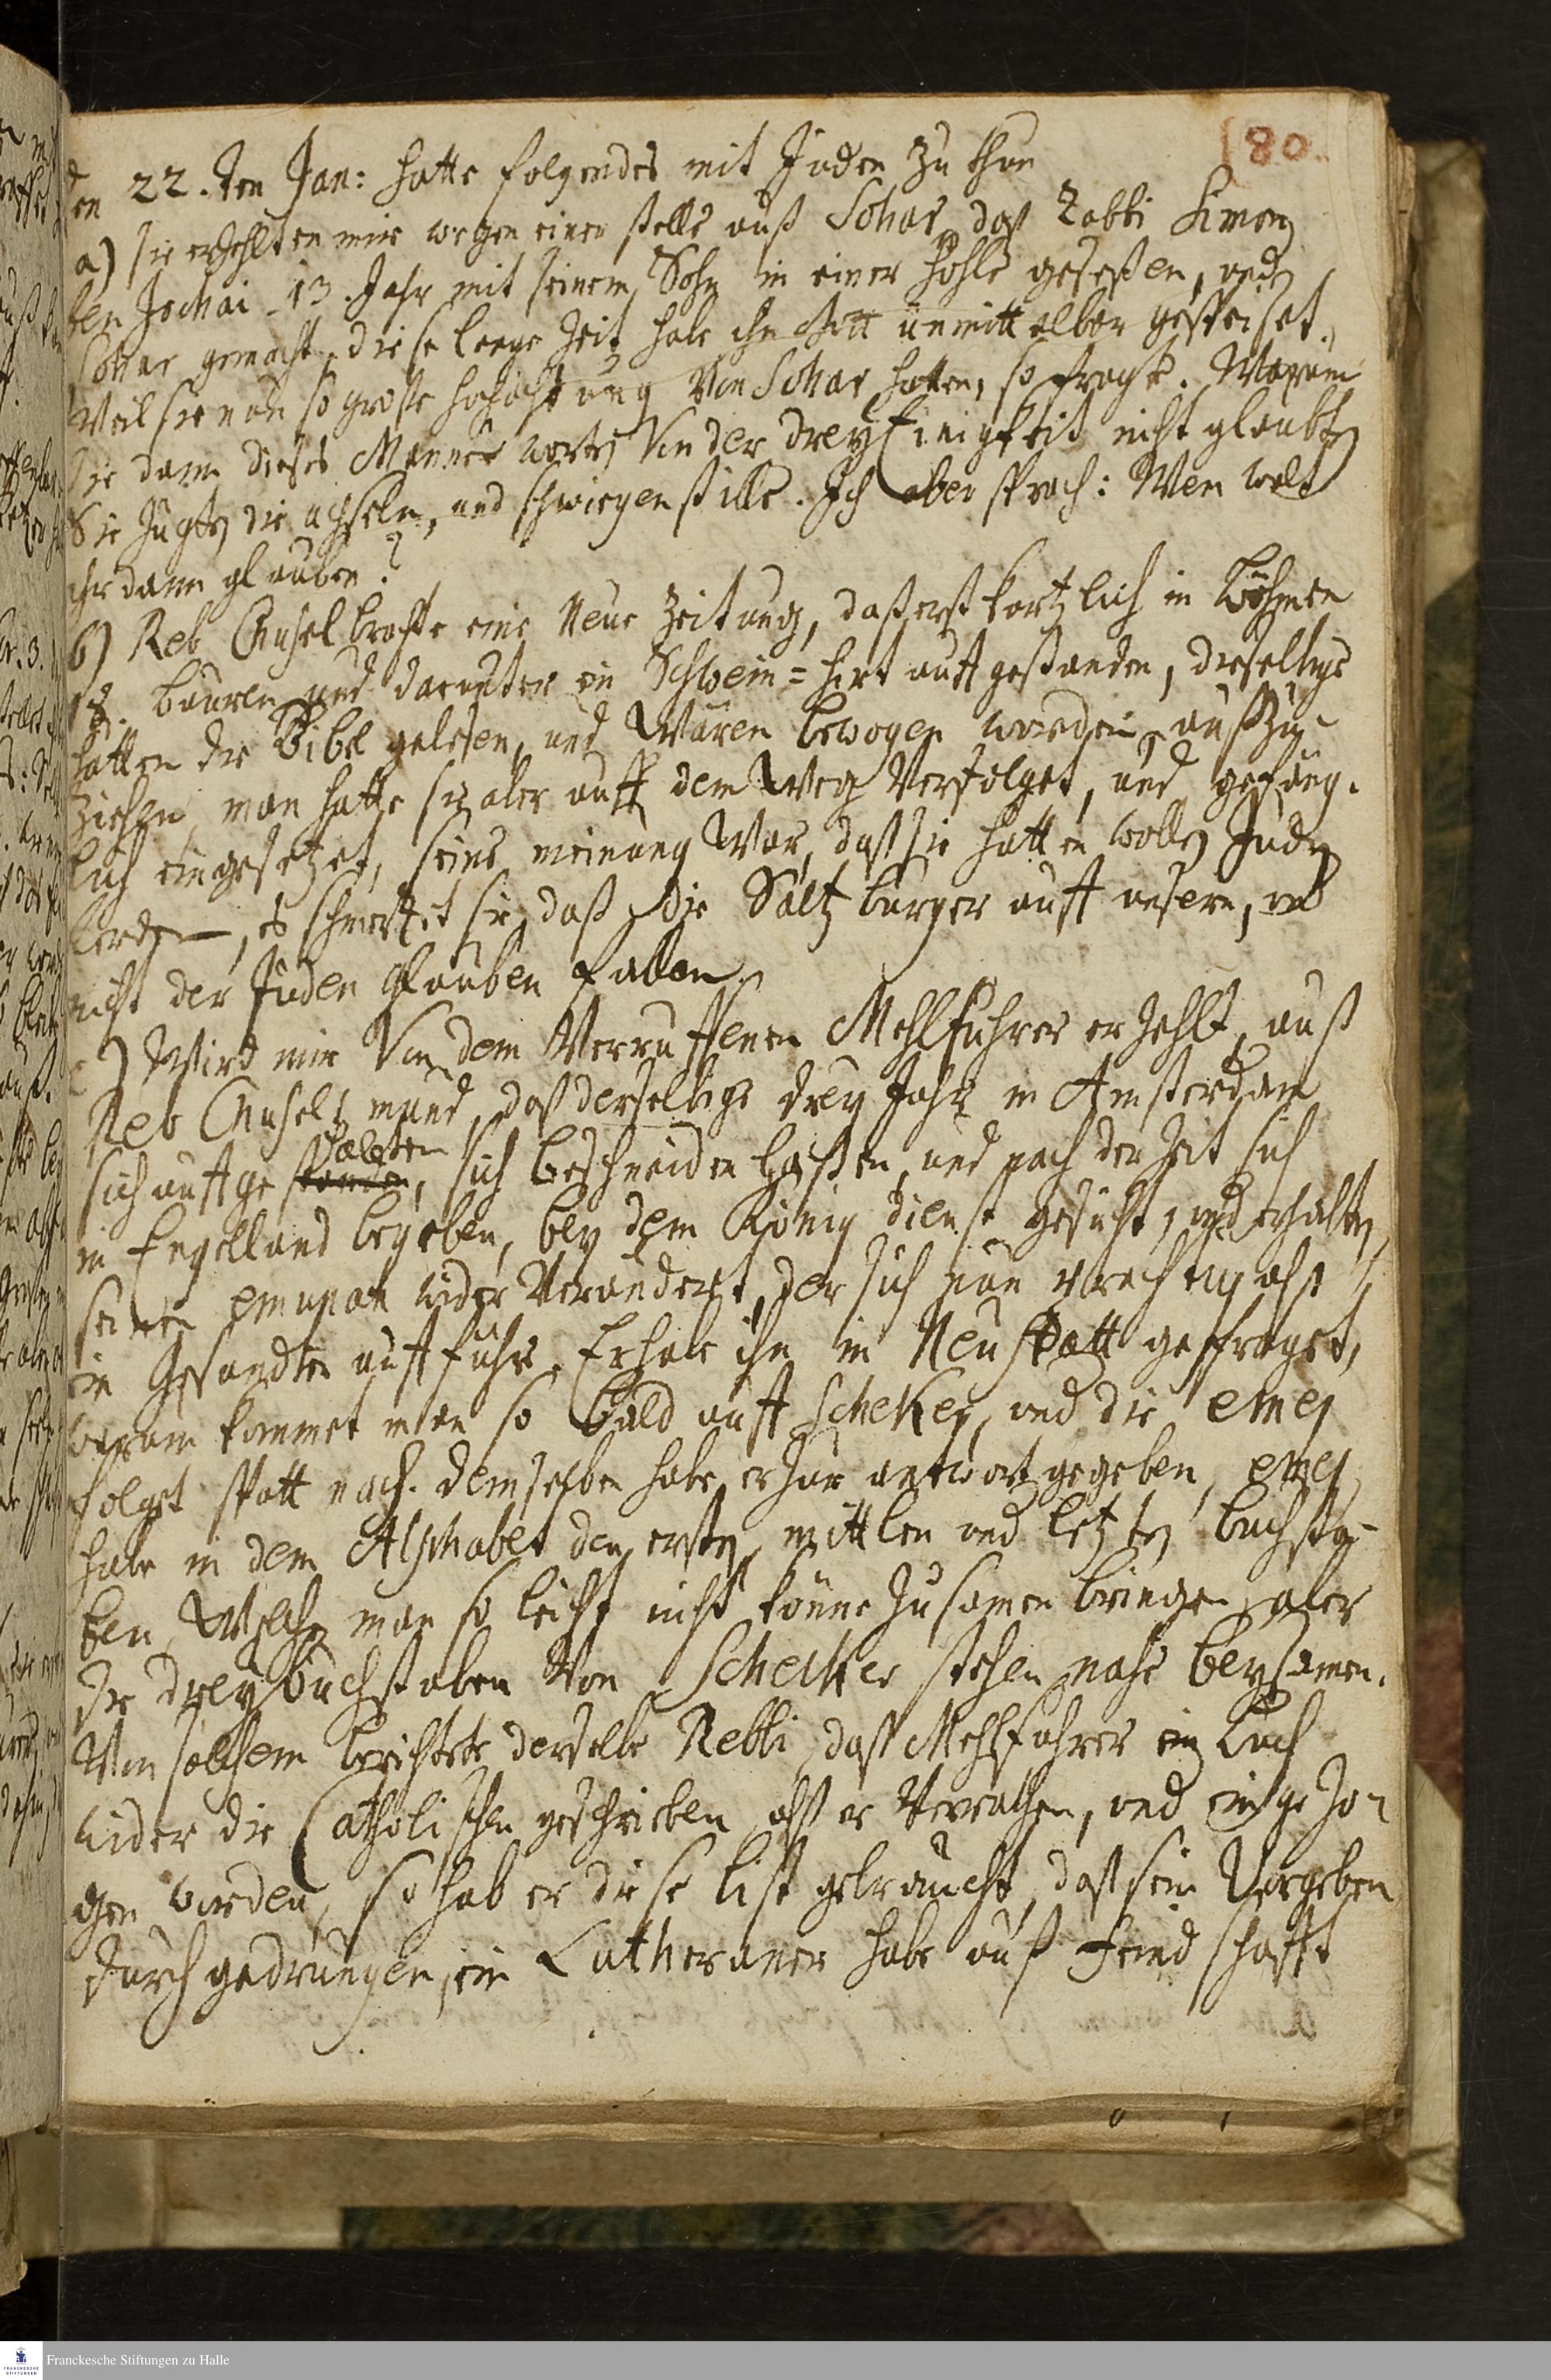 80.
den 22.ten Jan: hatte folgendes mit Juden zu thun
a) sie erzehlten mir wegen einer stelle auß Sohar, daß Rabbi Simon
ben Jochai 13. Jahr mit seinem Sohn in einer Höhle geseßen, und
Sohar gemacht, diese lange Zeit habe ihn Gott unmittelbar gespeiset.
Weil sie nun so große hochachtung Von Sohar hatten, so fragte. Warum
Sie dann dieses Mannes worten Von der dreyEinigkeit nicht glaubten
Sie zugten die achseln, und schwiegen stille. Ich aber sprach: Wem wolt
ihr dann glauben?
b) Reb Anshel brachte eine Neue Zeitung, daß erst kortzlich in Böhmen
Bauren und darunter ein Schwein=hirt auffgestanden, dieselbige
hatten die Bibel gelesen, und Wären bewogen worden, außzu-
ziehen, man hatte sie aber auff dem Weg Verfolget, und gefäng-
lich eingesetzet, seine meinung War, daß sie hatten wollen Juden
werden, es schmertzet sie, daß die Saltzburger auff unsern, und
nicht der Juden Glauben fallen.
c) Wird mir Von dem Verruffenen Mehlführer erzehlt, auß
Reb Anshels mund, daß derselbige drey Jahr in Amsterdam
sich auffge halten, sich beschneiden laßen, und nach der Zeit sich
in Engelland begeben, bey dem König dienst gesucht, und erhalten,
seinen emunah wider Verändert, der sich nun als
ein Gesandter aufführe. Er habe ihn in Neustatt gefraget,
warum kommet man so bald auff Scheker, und die emes
folget spatt nach. demselben habe er zur antwort gegeben, emes
habe in dem Alphabet den ersten, mittlen und letzten buchsta-
ben, Welche man so leicht nicht könne zusamen bringen, aber
die drey buchstaben Von Scheker stehen nahe beysamen.
Von solchem berichtete derselbe Rebbi, daß Mehlfuhrer ein buch
wider die Catholischen geschrieben, alß er Verrathen, und eingezo-
gen worden, so hab er diese list gebraucht, daß sein Vorgeben
durchgedrungen, ein Lutheraner habe auß Feindschafft
Franckesche Stiftungen zu Halle